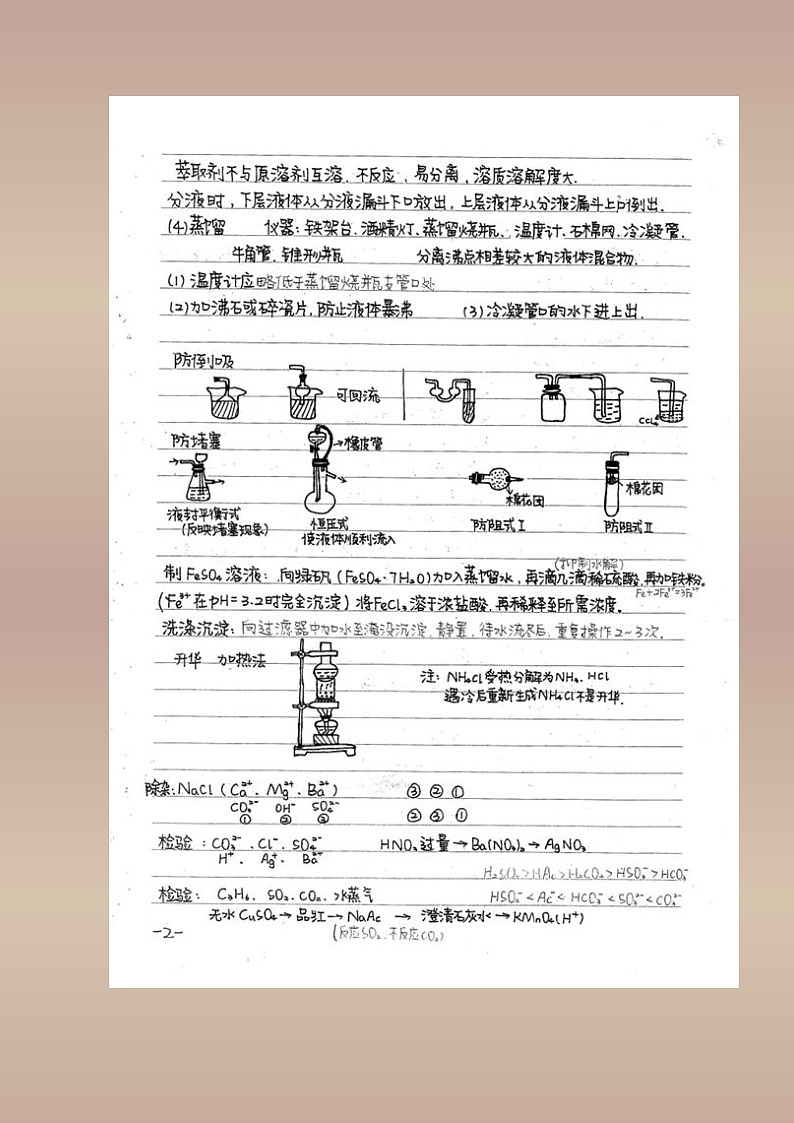 萃取剂不与原溶剂互溶、不反应，易分离，溶质溶解度大.
分液时，下层液体从分液漏斗下口放出，上层液体从分液漏斗上口倒出.
(4)蒸馏 仪器：铁架台、酒精灯、蒸馏烧瓶、温度计、石棉网、冷凝管、
牛角管、锥形瓶 分离沸点相差较大的液体混合物.
(1) 温度计应略低于蒸馏烧瓶支管口处
(2)加沸石或碎瓷片,防止液体暴沸 (3)冷凝管口的水下进上出.
防倒吸
可回流
CCl4
防堵塞
橡皮管
棉花团
棉花团
液封平衡式
(反映堵塞现象)
恒压式
使液体顺利流入
防阻式Ⅰ
防阻式Ⅱ
(抑制水解)
制FeSO4溶液：向绿矾(FeSO4·7H2O)加入蒸馏水，再滴几滴稀硫酸，再加铁粉。
Fe+2Fe3+=3Fe2+
(Fe3+在pH=3.2时完全沉淀) 将FeCl3溶于浓盐酸，再稀释至所需浓度。
洗涤沉淀：向过滤器中加水至淹没沉淀，静置，待水流尽后，重复操作2~3次.
升华 加热法
注：NH4Cl受热分解为NH3、HCl
遇冷后重新生成NH4Cl不是升华.
除杂：NaCl (Ca2+、Mg2+、Ba2+) ③ ② ①
CO32- OH- SO42-
① ② ③ ② ③ ①
检验：CO32-、Cl-、SO42- HNO3过量→Ba(NO3)2→AgNO3
H+、Ag+、Ba2+
H2SO3>HAc>H2CO3>HSO3->HCO3-
检验：C3H6、SO2、CO2、水蒸气 HSO3-<Ac-<HCO3-<SO32-<CO32-
无水CuSO4→品红→NaAc → 澄清石灰水→KMnO4(H+)
(反应SO2、不反应CO2)
-2-